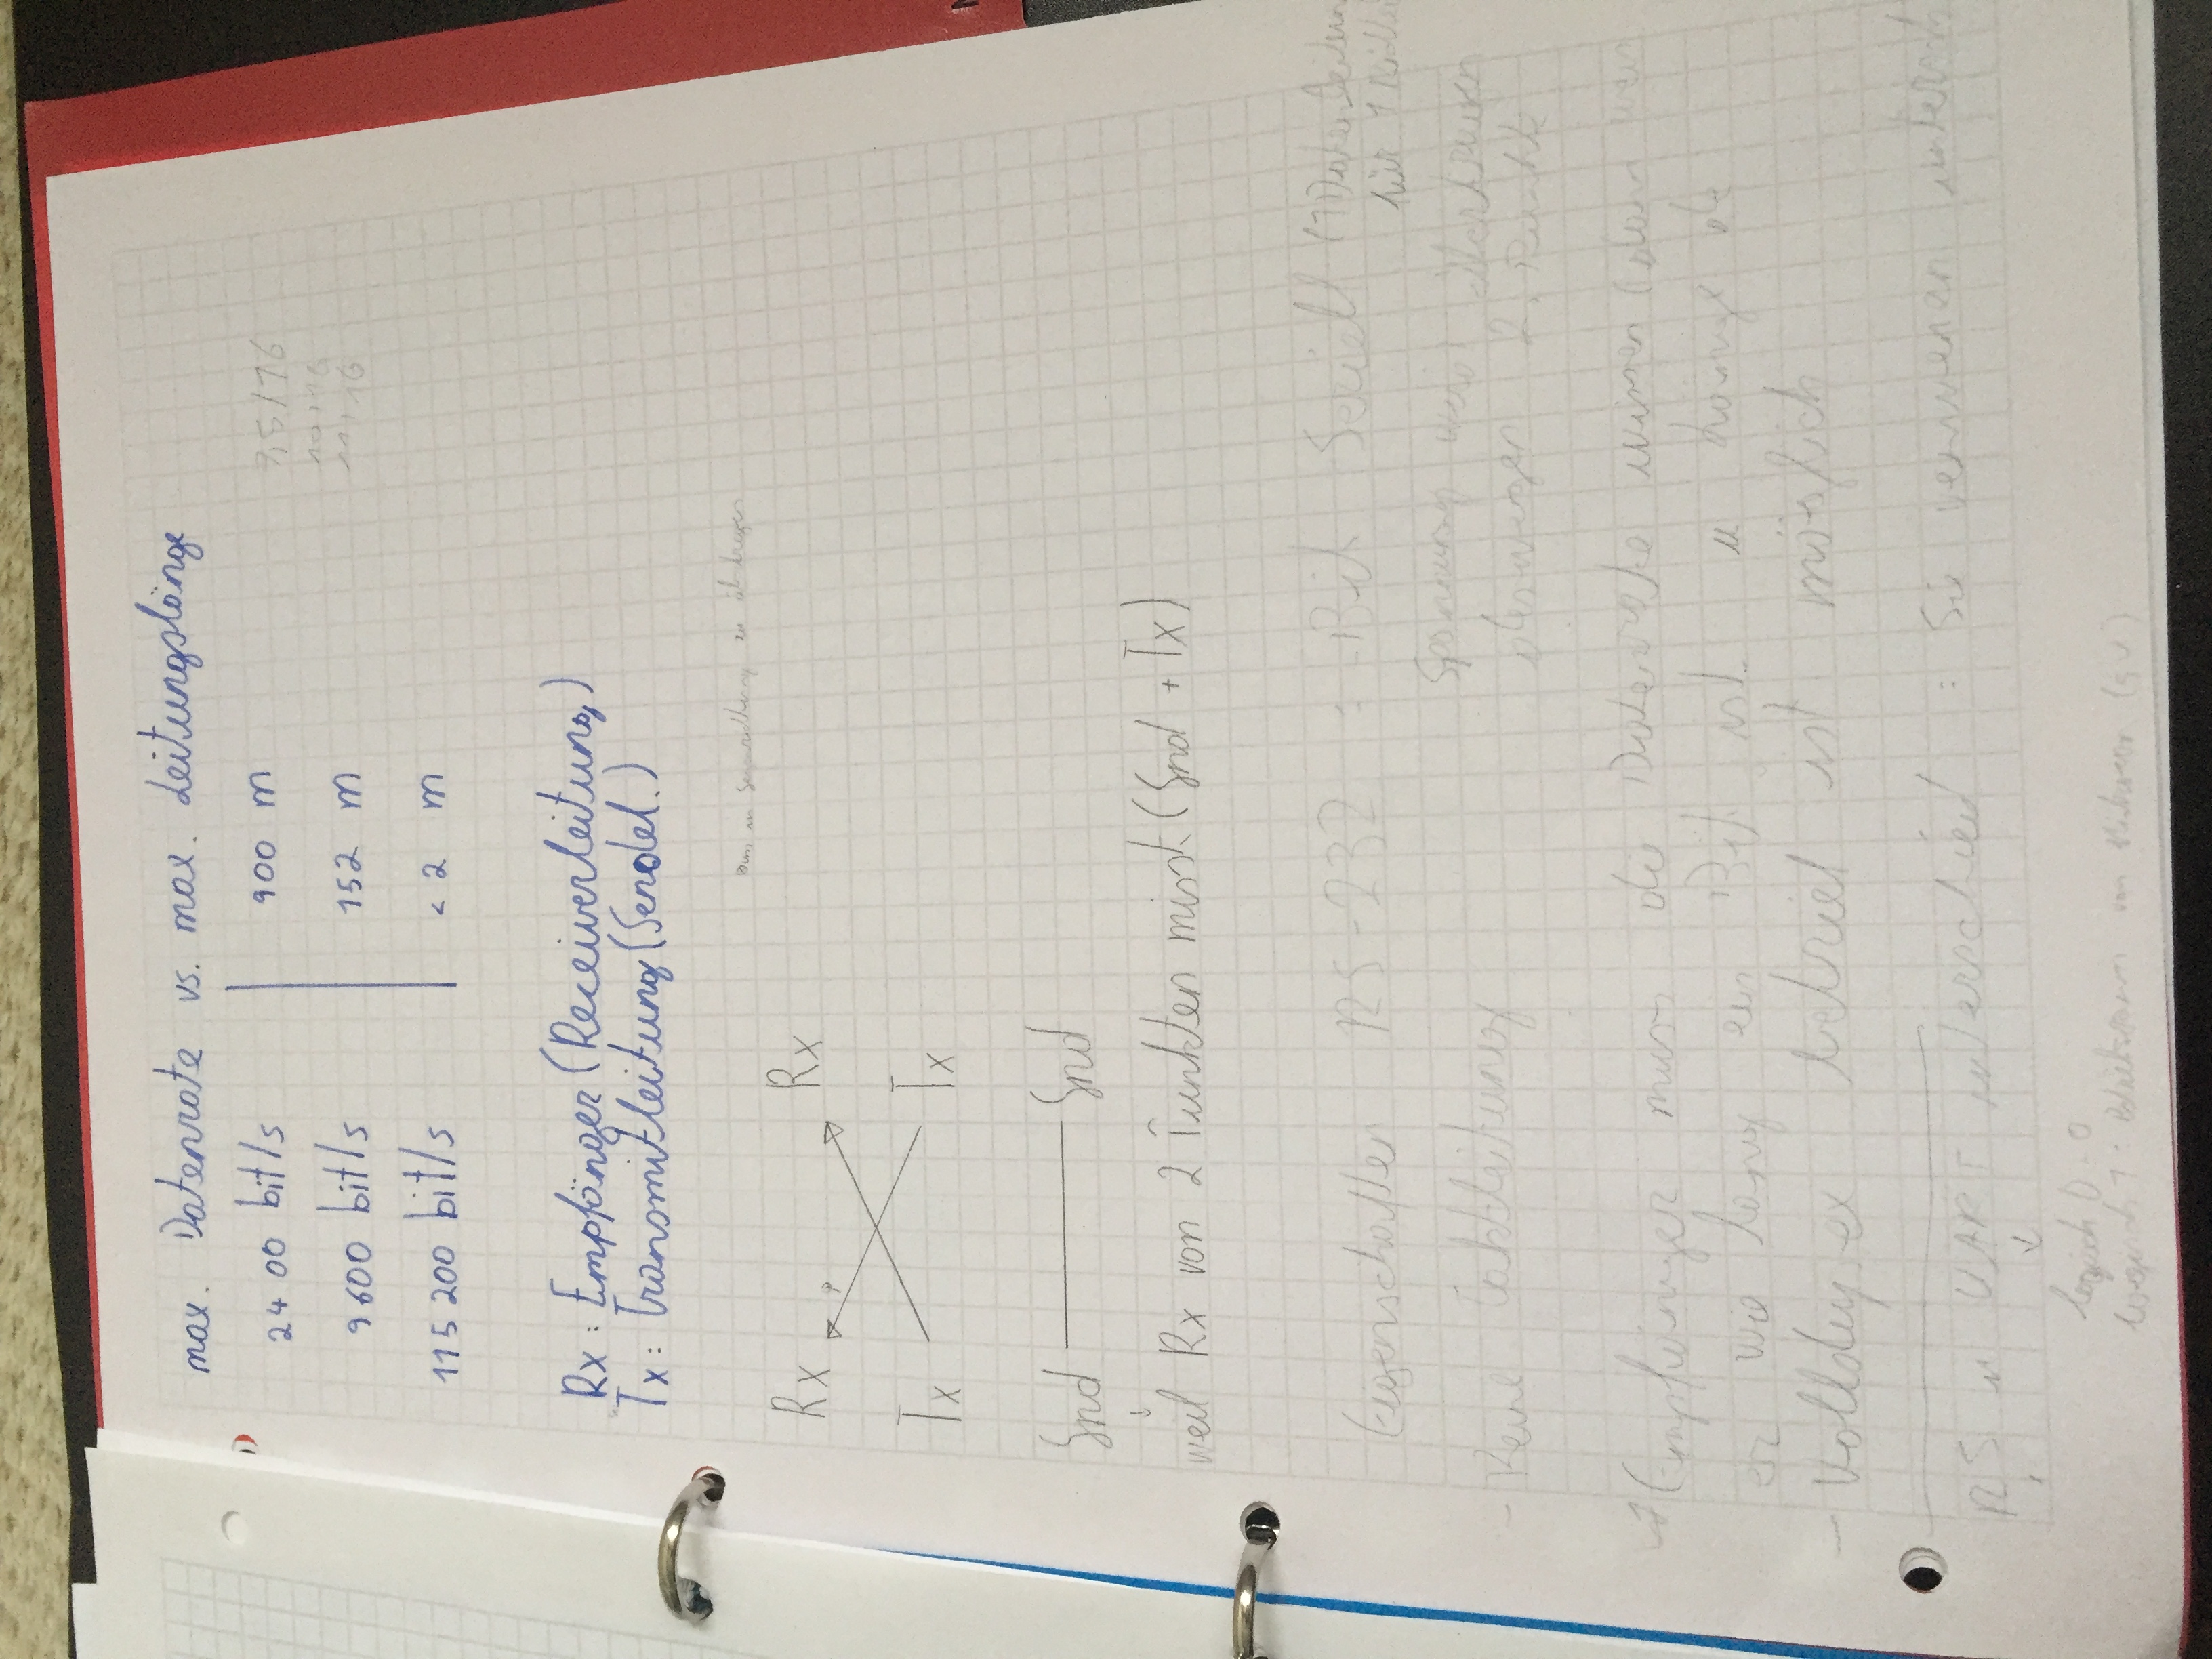 max. Datenrate vs. max. Leitungslänge
2400 bit/s 900 m
9600 bit/s 152 m
115200 bit/s < 2 m
7,5/16
10,16
11,16
Rx: Empfänger (Receiverleitung)
Tx: Transmitleitung (Sendel.)
zu übertragen
Rx Rx
Tx Tx
Gnd Gnd
weil Rx von 2 Punkten misst (Gnd + Tx)
Eigenschaften RS-232 : - Bit Seriell (1 Datenleitun
für 1
Spannung
- Keine Taktleitung
deswegen 2. Punkte
→ Empfänger muss die Datenrate wissen (dann
er wie lang ein Bit ist u
- Vollduplex betrieb ist möglich
RS u UART unterschied : Sie untersch
logisch 0 = 0
logisch 1 : von (5V)